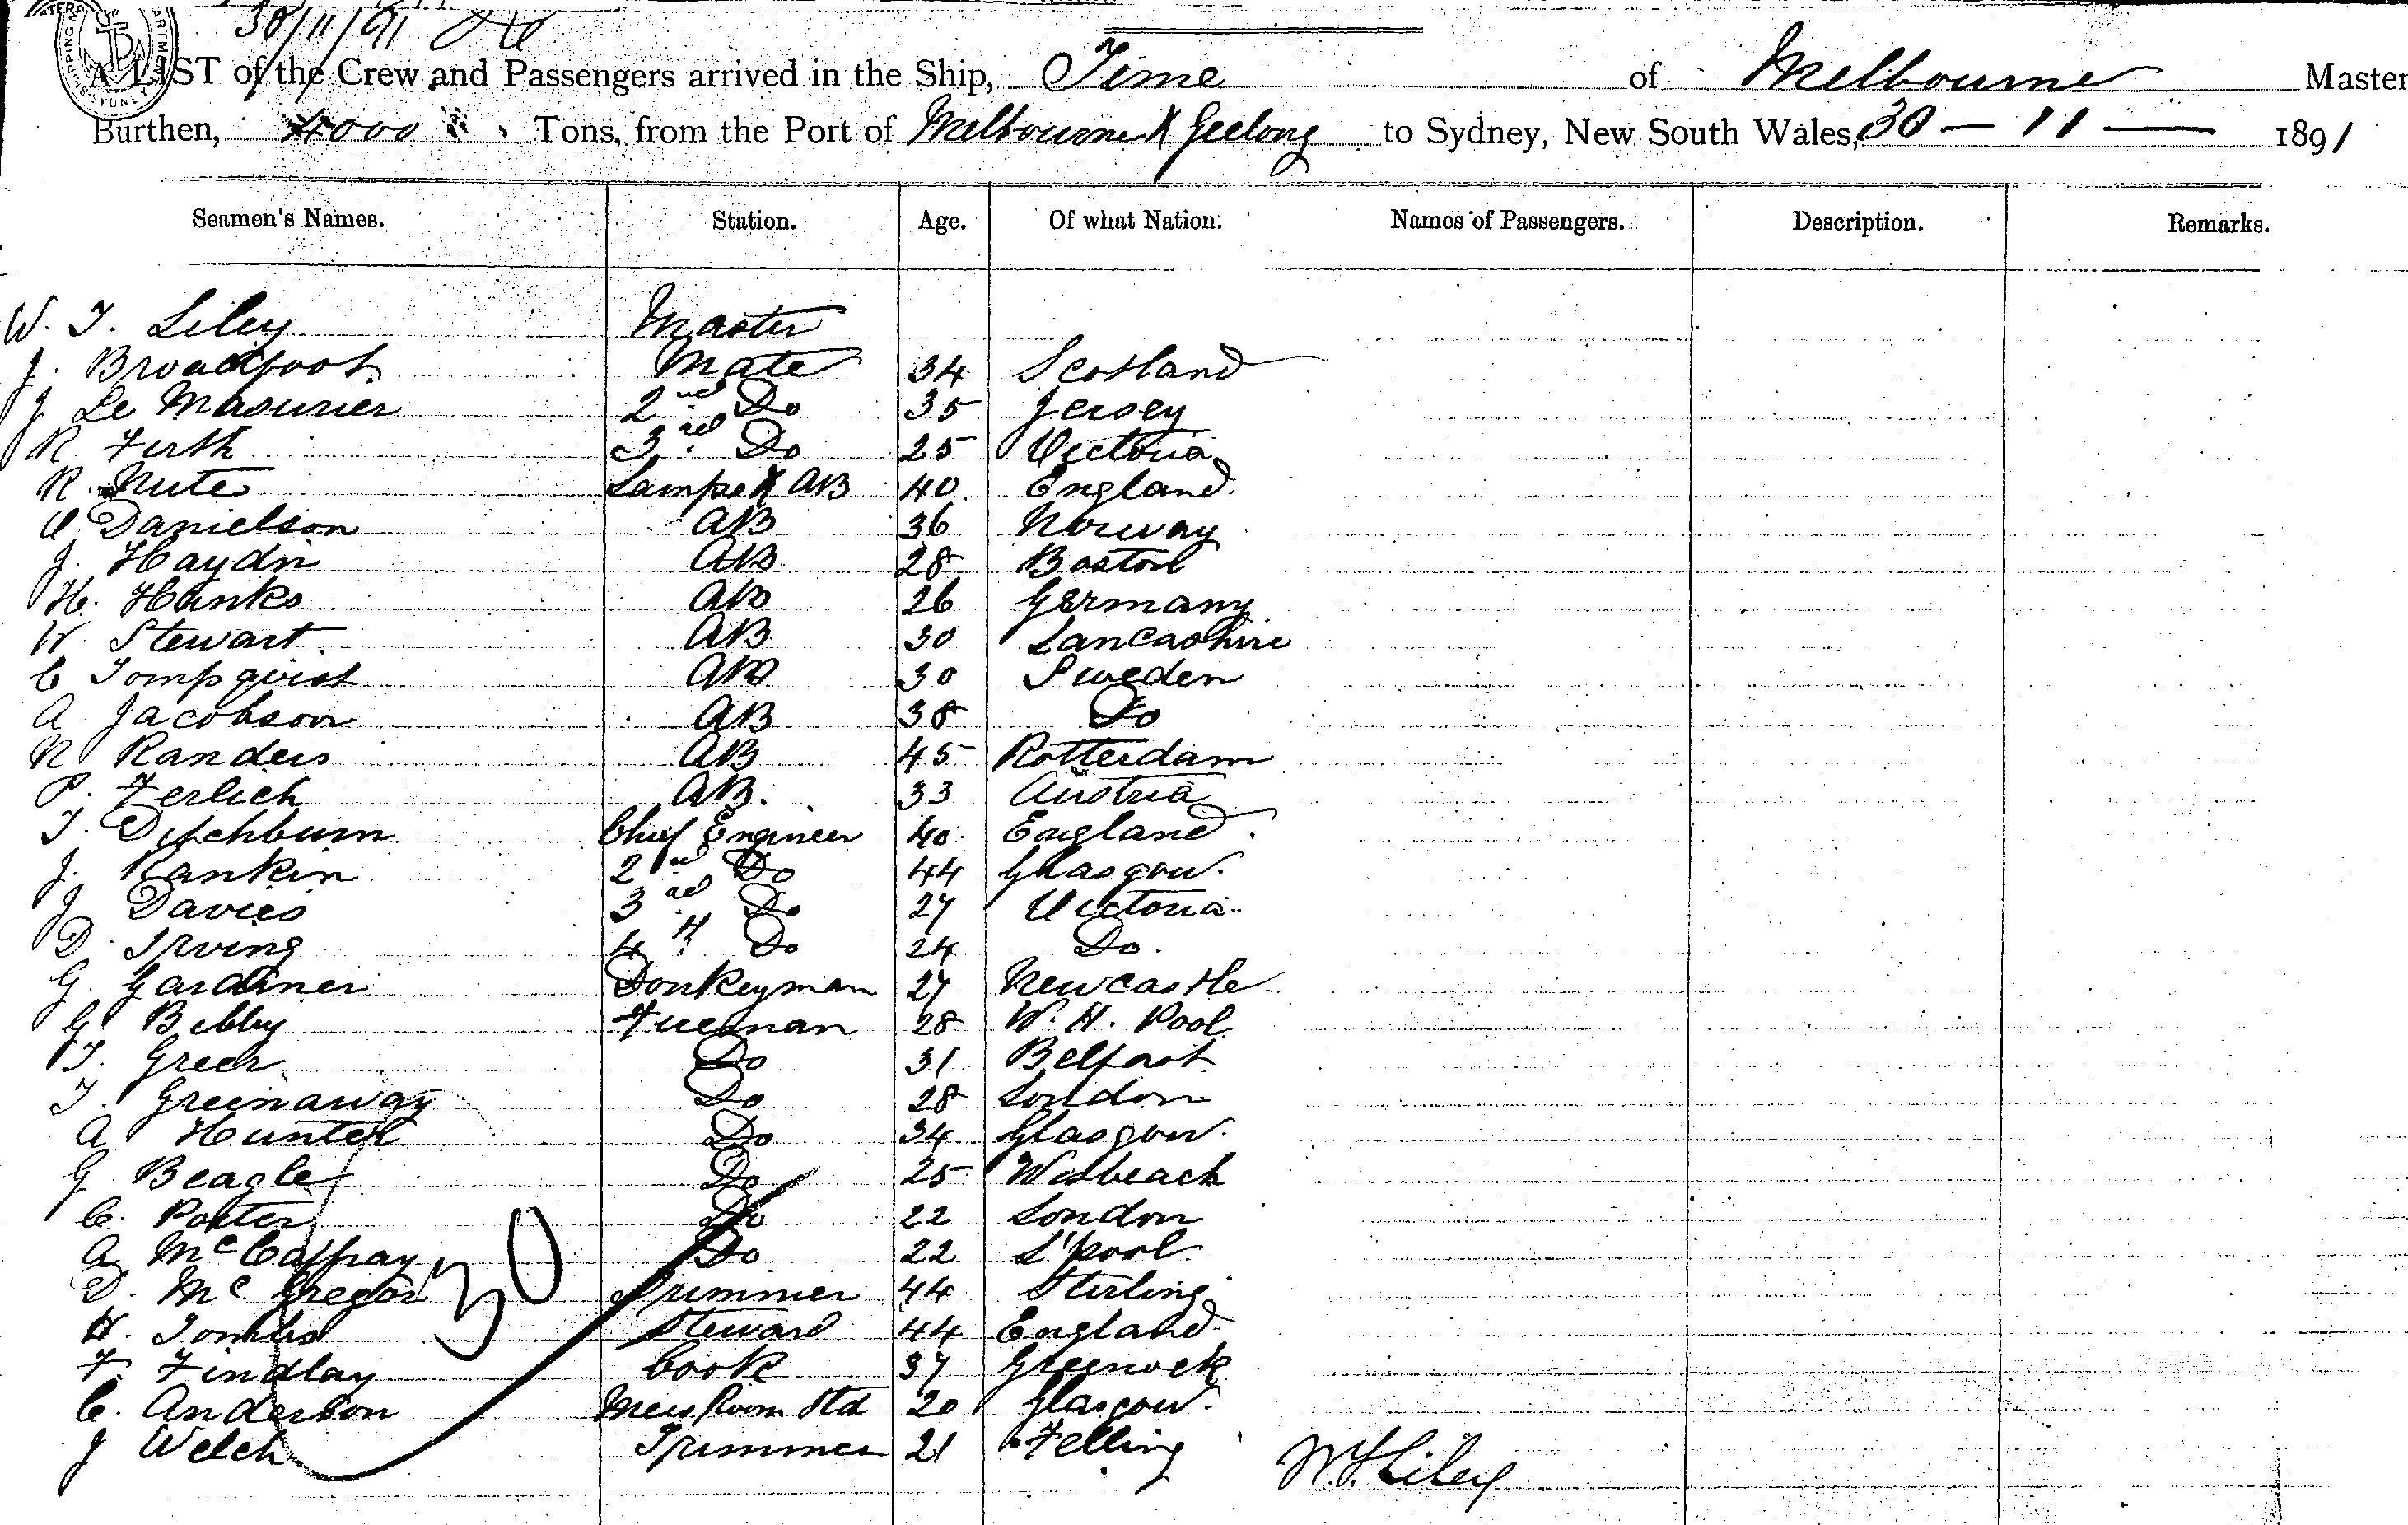 30/11/91
A LIST of the Crew and Passengers arrived in the Ship, Time of Melbourne Master
Burthen, 4000 Tons, from the Port of Melbourne & Geelong to Sydney, New South Wales, 30 — 11 — 1891
Seamen's Names. Station. Age. Of what Nation. Names of Passengers. Description. Remarks.
W. T. Liley Master
J. Broadfoot Mate 34 Scotland
J Le Masurier 2nd Do 35 Jersey
R. Firth 3rd Do 25 Victoria
R. Nute Lamps & AB 40 England
Danielson AB 36 Norway
J. Haydn AB 28 Boston
H. Hanks AB 26 Germany
W. Stewart AB 30 Lancashire
C Tompqvist AB 30 Sweden
A Jacobson AB 38 Do
N Randers AB 45 Rotterdam
P. Ferlich AB. 33 Austria
T. Ditchburn Chief Engineer 40 England
J. Rankin 2nd Do 44 Glasgow.
J Davies 3rd Do 27 Victoria
D. Irving 4th Do 24 Do.
G. Gardiner Donkeyman 27 Newcastle
G Bibby Fireman 28 W. H. Pool
T. Greer Do 31 Belfast
T. Greenaway Do 28 London
A Hunter Do 34 Glasgow.
G Beagle Do 25 Wisbeach
C. Porter Do 22 London
A McCaffray Do 22 L'pool
D. McGregor Trimmer 44 Stirling
H. Tombs Steward 44 England
F. Findlay Cook 37 Greenock
C. Anderson Mess Room Std 20 Glasgow.
J Welch Trimmer 21 Felling
30
W. T. Liley